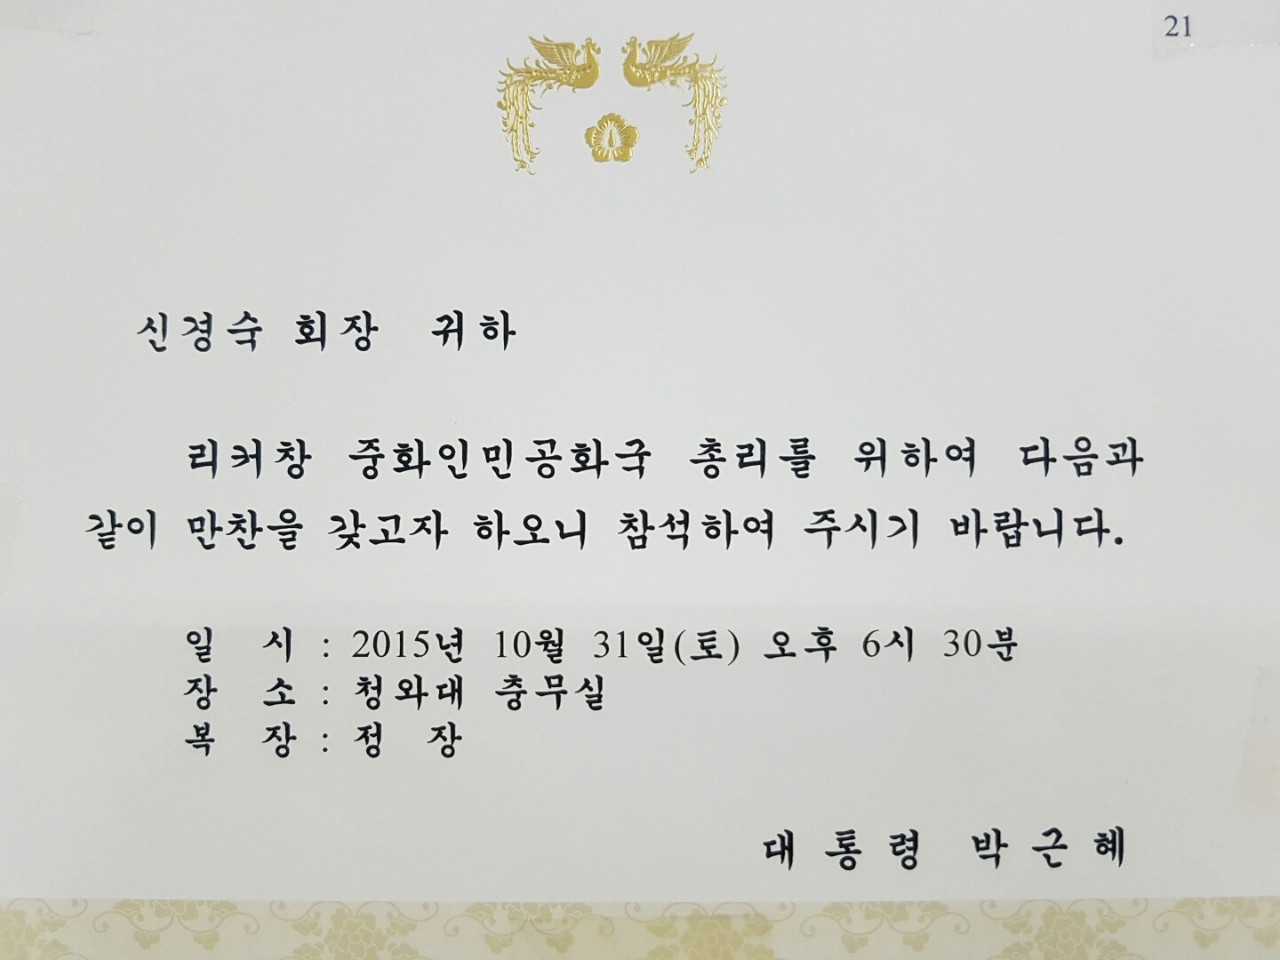 21
신경숙 회장 귀하
리커창 중화인민공화국 총리를 위하여 다음과
같이 만찬을 갖고자 하오니 참석하여 주시기 바랍니다.
일 시 : 2015년 10월 31일(토) 오후 6시 30분
장 소 : 청와대 충무실
복 장 : 정 장
대통령 박근혜